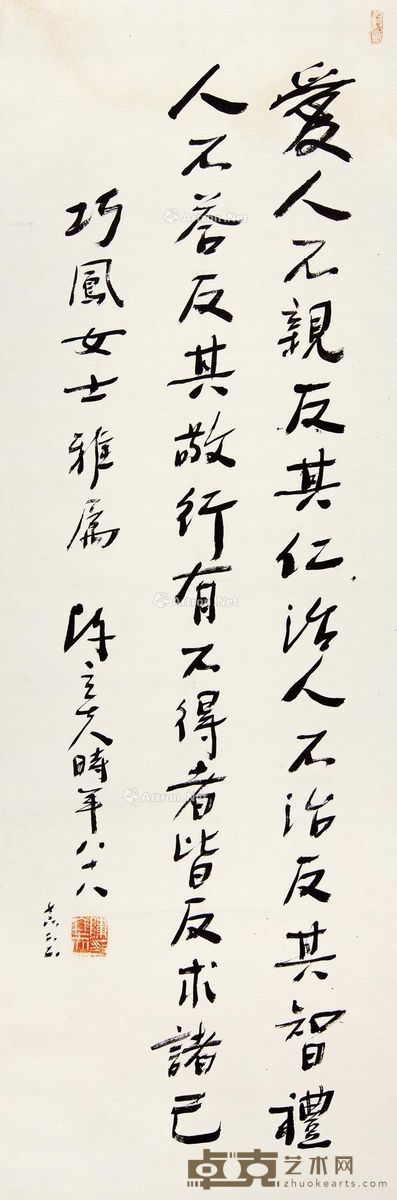 愛人不親反其仁治人不治反其智禮
人不答反其敬行有不得者皆反求諸己
巧鳳女士雅屬 陳立夫時年八十八
Artron.Net
Artron.Net
Artron.Net
Artron.Net
卓克艺术网
zhuokearts.com